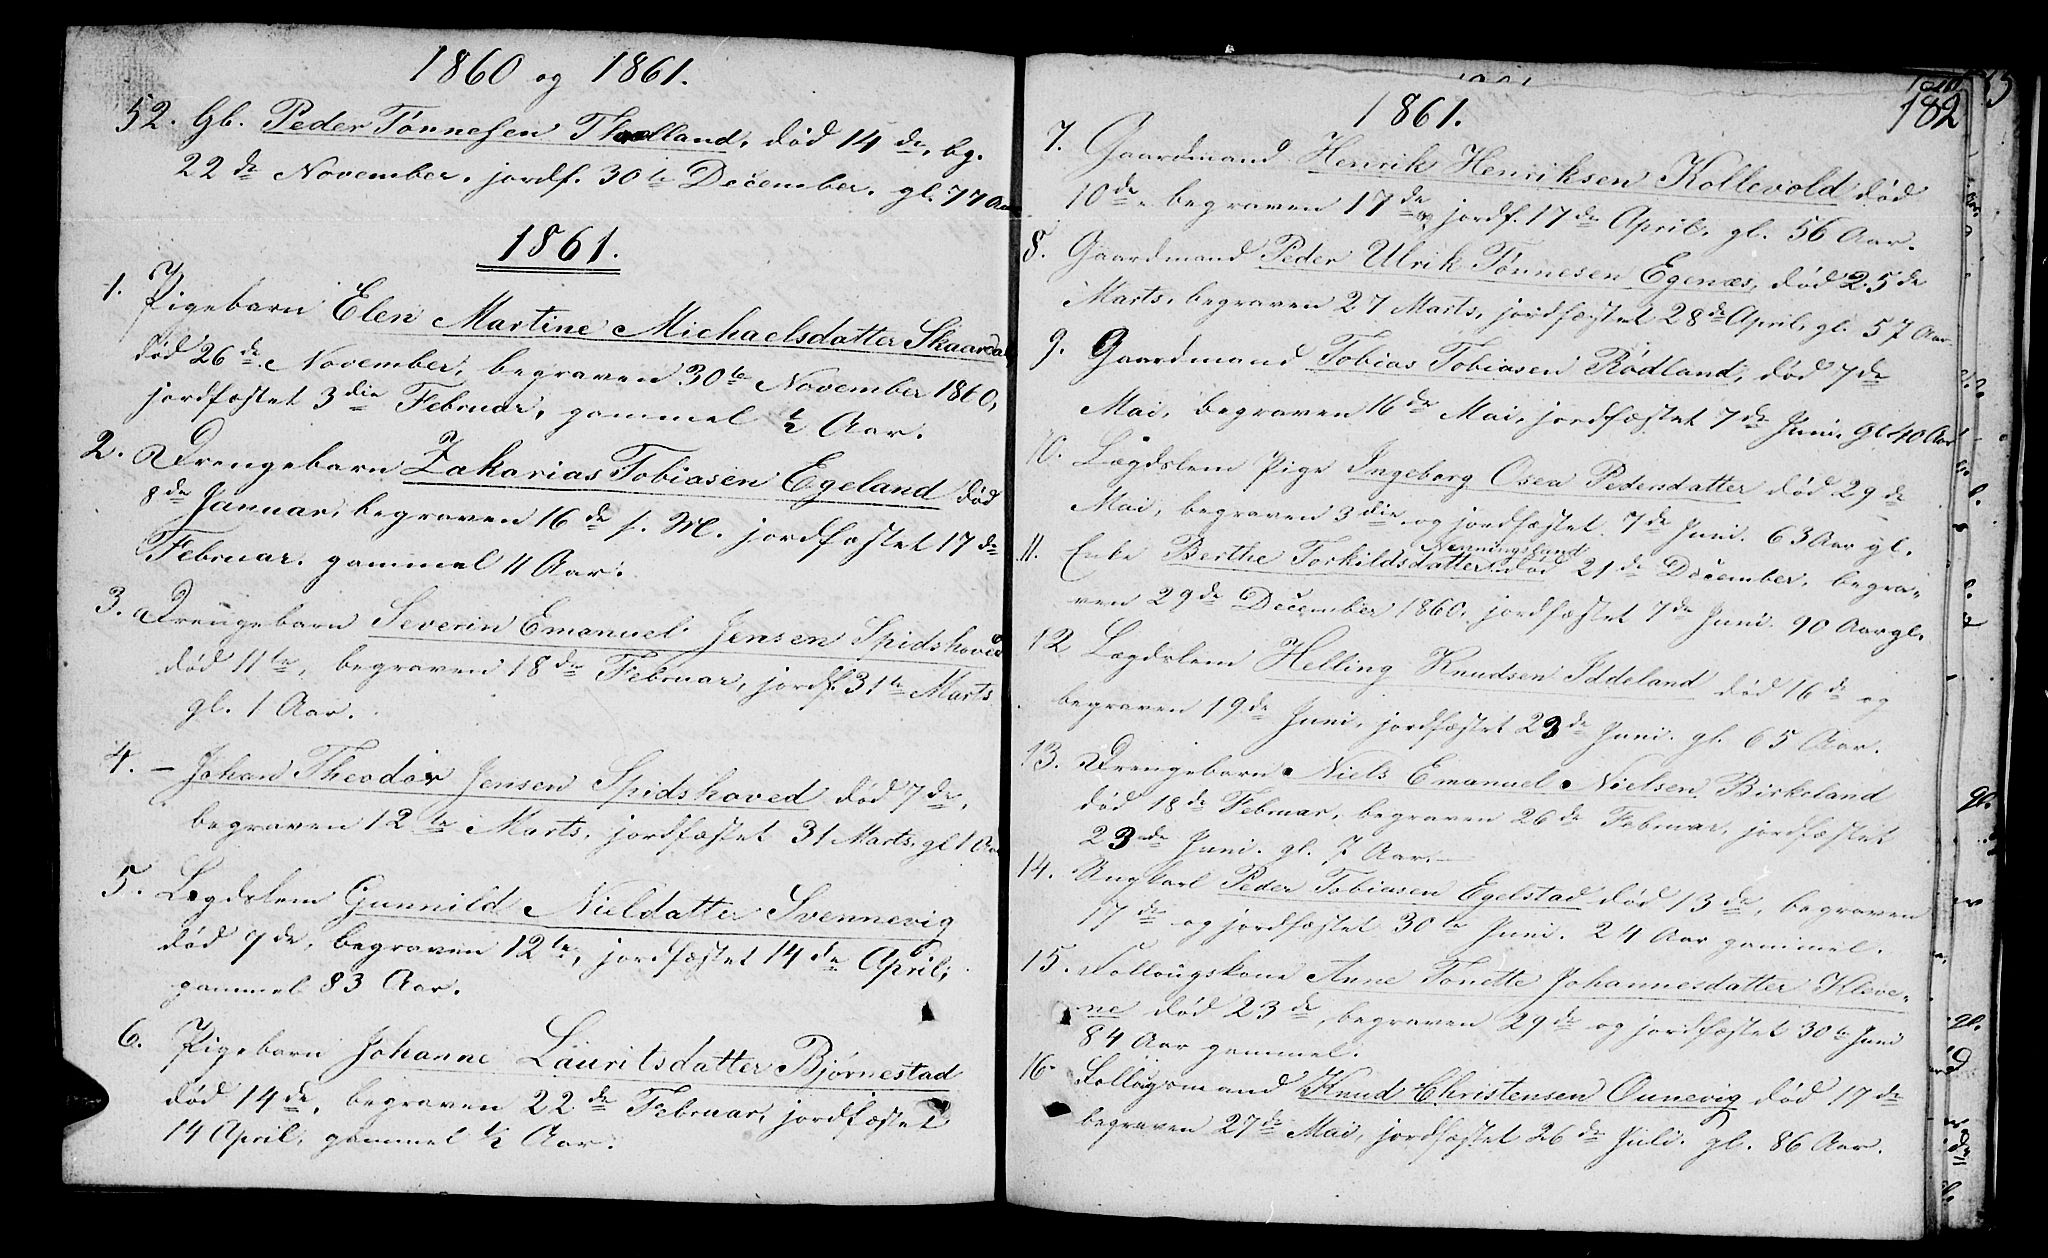 1860 og 1861.
52. Gb. Peder Tönnesen Thelland, död 14de, bg.
22de November, jordf. 30te December, gl. 77 Aar
1861.
1. Pigebarn Elen Martine Michaelsdatter Skaardal
död 26de November, begraven 30te November 1860,
jordfæstet 3die Februar, gammel ½ Aar.
2. Drengebarn Zakarias Tobiasen Egeland död
8de Januar, begraven 16de s. M. jordfæstet 17de
Februar. gammel 11 Aar.
3. Drengebarn Severin Emanuel Jensen Spidshoved
död 11te, begraven 18de Februar, jordf. 31te Marts
gl. 1 Aar.
4. — Johan Theodor Jensen Spidshoved död 7de,
begraven 12te Marts, jordfæstet 31 Marts, gl 1 Aar
5. Lægdslem Gunnild Nielsdatter Svennevig
död 7de, begraven 12te, jordfæstet 14de April,
gammel 83 Aar.
6. Pigebarn Johanne Lauritsdatter Bjørnestad
död 14de, begraven 22de Februar, jordfæstet
14 April, gammel ½ Aar.
182
1861.
7. Gaardmand Henrik Henriksen Kollevold död
10de, begraven 17de og jordf. 17de April, gl. 56 Aar.
8. Gaardmand Peder Ulrik Tönnesen Egenæs, död 25de
Marts, begraven 27 Marts, jordfæstet 28de April, gl. 57 Aar.
9. Gaardmand Tobias Tobiasen Rødland, död 7de
Mai, begraven 16de Mai, jordfæstet 7de Juni, gl 40 Aar
10. Lægdslem Pige Ingeborg Osea Pedersdatter död 29de
Mai, begraven 3die og jordfæstet 7de Juni. 63 Aar gl.
11. Enke Berthe Torkildsdatter död 21de December, begra-
ven 29de December 1860, jordfæstet 7de Juni. 90 Aar gl.
12 Lægdslem Helling Knudsen Iddeland död 16de og
begraven 19de Juni, jordfæstet 23de Juni. gl. 65 Aar.
13. Drengebarn Niels Emanuel Nielsen Birkeland
död 18de Februar, begraven 26de Februar, jordfæstet
23de Juni. gl. 7 Aar.
14. Ungkarl Peder Tobiasen Egelstad död 13de, begraven
17de og jordfæstet 30te Juni. 24 Aar gammel.
15. Follougskone Anne Tonette Johannesdatter Kleve-
ne död 23de, begraven 29de og jordfæstet 30te Juni
84 Aar gammel.
16. Follougsmand Knud Christensen Ounevig död 17de
begraven 27de Mai, jordfæstet 26de Juli. gl. 86 Aar.